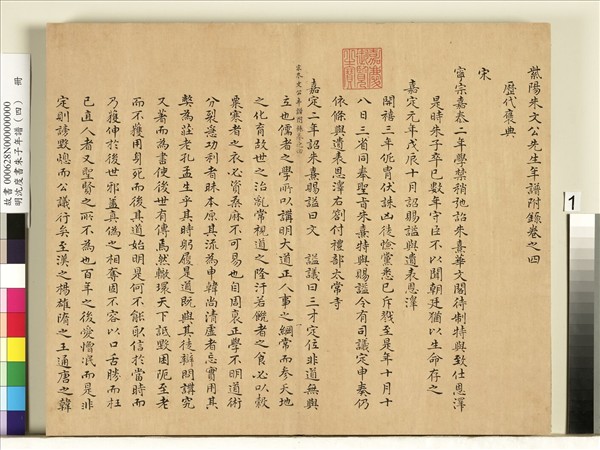 紫陽朱文公先生年譜附錄卷之四
歷代褒典
宋
寧宗嘉泰二年學禁稍弛詔朱熹華文閣待制特與致仕恩澤
是時朱子卒已數年守臣不以聞朝廷猶以生命存之
嘉定元年戊辰十月詔賜謚與遺表恩澤
開禧三年侂胄伏誅凶後憸黨悉已斥戮至是年十月十
八日三省同奉聖旨朱熹特與賜謚令有司議定申奏仍
依條與遺表恩澤右劄付禮部太常寺
宋朱文公年譜附錄卷之四
嘉定二年詔朱熹賜謚曰文 謚議曰三才定位非道無與
立也儒者之學所以講明大道正人事之綱常而參天地
之化育故世之治亂常視道之隆汙若饑者之食必以穀
粟寒者之衣必資桑麻不可易也自周衰正學不明道術
分裂邀功利者昧本原其流為申韓尚清虛者忘實用其
弊為莊老孔孟生乎其時躬履是道既與其徒辯問講究
又著而為書使後世有傳焉然轍環天下詆毀困阨至老
而不獲用身死而後其道始明是何不能取信於當時而
乃獲伸於後世邪蓋真偽之相奪固不容以口舌勝而枉
己直人者又聖賢之所不為也百年之後愛憎泯而是非
定則謗毀熄而公議行矣至漢之楊雄隋之王通唐之韓
嘉慶御覽之寶
故書000628N000000000
明沈度書朱子年譜(四)
1